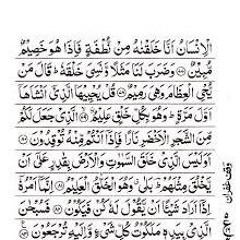 الْاِنْسَانُ اَنَّا خَلَقْنٰهُ مِنْ نُّطْفَةٍ فَاِذَا هُوَ خَصِيْمٌ
مُّبِيْنٌ ۝ وَضَرَبَ لَنَا مَثَلًا وَّنَسِىَ خَلْقَهٗ ؕ قَالَ مَنْ
يُّحْىِ الْعِظَامَ وَهِىَ رَمِيْمٌ ۝ قُلْ يُحْيِيْهَا الَّذِىْۤ اَنْشَاَهَاۤ
اَوَّلَ مَرَّةٍ ؕ وَهُوَ بِكُلِّ خَلْقٍ عَلِيْمٌ ۝ الَّذِىْ جَعَلَ لَكُمْ
مِّنَ الشَّجَرِ الْاَخْضَرِ نَارًا فَاِذَاۤ اَنْتُمْ مِّنْهُ تُوْقِدُوْنَ ۝
اَوَلَيْسَ الَّذِىْ خَلَقَ السَّمٰوٰتِ وَالْاَرْضَ بِقٰدِرٍ عَلٰۤى اَنْ
يَّخْلُقَ مِثْلَهُمْ ؕ بَلٰى ۗ وَهُوَ الْخَلّٰقُ الْعَلِيْمُ ۝ اِنَّمَاۤ اَمْرُهٗۤ
اِذَاۤ اَرَادَ شَيْئًا اَنْ يَّقُوْلَ لَهٗ كُنْ فَيَكُوْنُ ۝ فَسُبْحٰنَ
الَّذِىْ بِيَدِهٖ مَلَكُوْتُ كُلِّ شَىْءٍ وَّاِلَيْهِ تُرْجَعُوْنَ ۝
وقف غفران